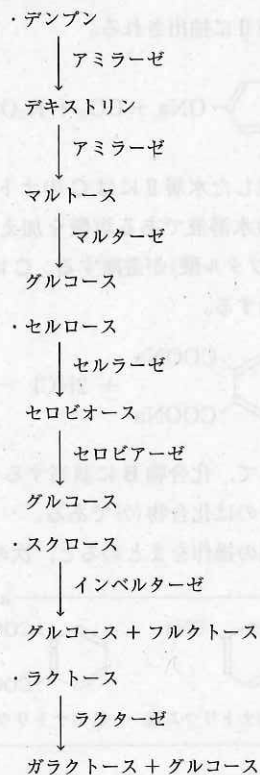 ・デンプン
アミラーゼ
デキストリン
アミラーゼ
マルトース
マルターゼ
グルコース
・セルロース
セルラーゼ
セロビオース
セロビアーゼ
グルコース
・スクロース
インベルターゼ
グルコース + フルクトース
・ラクトース
ラクターゼ
ガラクトース + グルコース